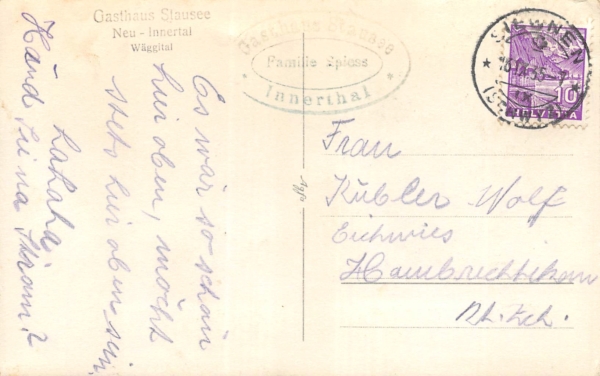 Gasthaus Stausee
Neu - Innertal
Wäggital
Gasthaus Stausee
Familie Spiess
Innerthal
SIEBNEN
(SCHWYZ)
10
HELVETIA
Es war so schön
hier oben, möcht
stets hier oben sein.
Händ Sie na Strom?
Frau
Kübler Wolf
Eichwies
Hombrechtikon
Kt. Zch.